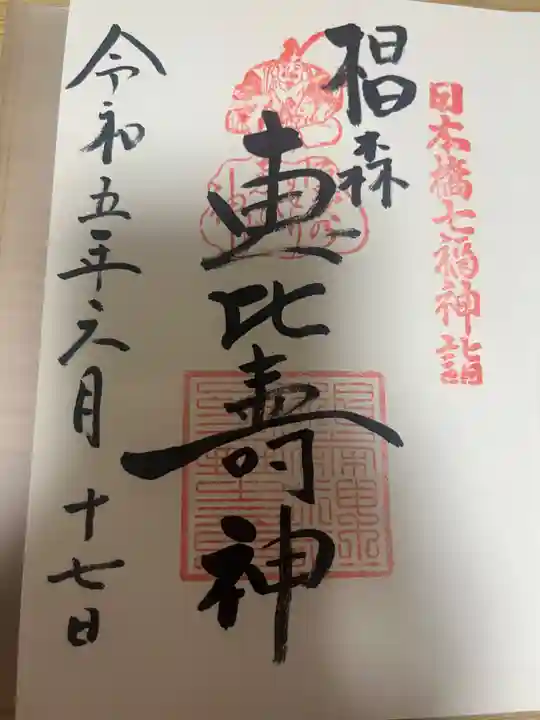 日本橋七福神詣
椙森
恵比寿神
令和五年六月十七日